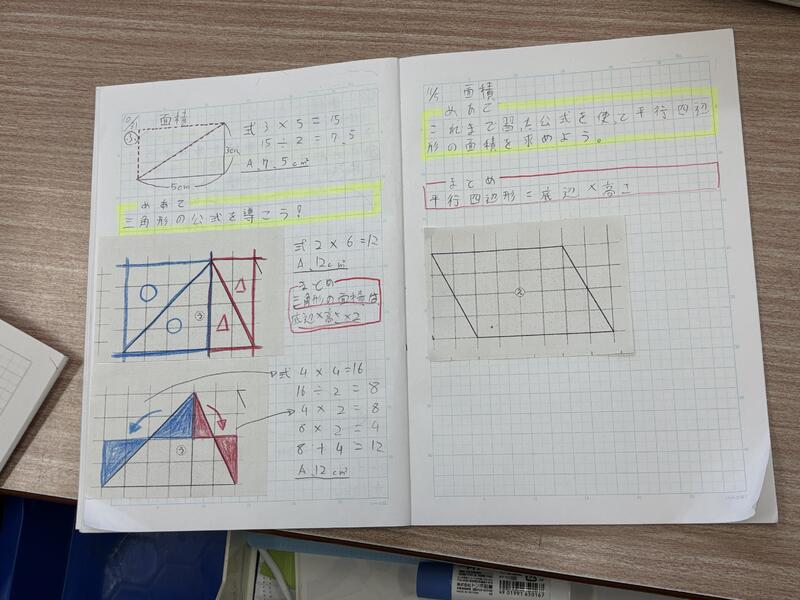 10/31 面積
③
式 3 × 5 = 15
15 ÷ 2 = 7.5
A. 7.5cm²
3cm
5cm
めあて
三角形の公式を導こう!
式 2 × 6 = 12
A. 12cm²
まとめ
三角形の面積は
底辺×高さ×2
②
式 4 × 4 = 16
16 ÷ 2 = 8
4 × 2 = 8
8 ÷ 2 = 4
8 + 4 = 12
A. 12cm²
②
11/5 面積
めあて
これまで習った公式を使って平行四辺
形の面積を求めよう。
まとめ
平行四辺形 = 底辺×高さ
②
4 901991 650167